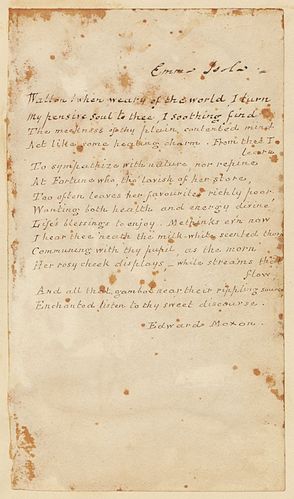 Emma Isola.
Walton! when weary of the world I turn
My pensive soul to thee, I soothing find
The meekness of thy plain, contented mind
Act like some healing charm. From thee I
learn
To sympathize with nature nor repine
At Fortune who, tho' lavish of her store,
Too often leaves her favourites richly poor
Wanting both health and energy divine
Life's blessings to enjoy. Methinks e'en now
I hear thee 'neath the milk-white scented thorn
Communing with thy pupil as the morn
Her rosy cheek displays - while streams that
flow
And all that gambol near their rippling source
Enchanted listen to thy sweet discourse.
Edward Moxon.